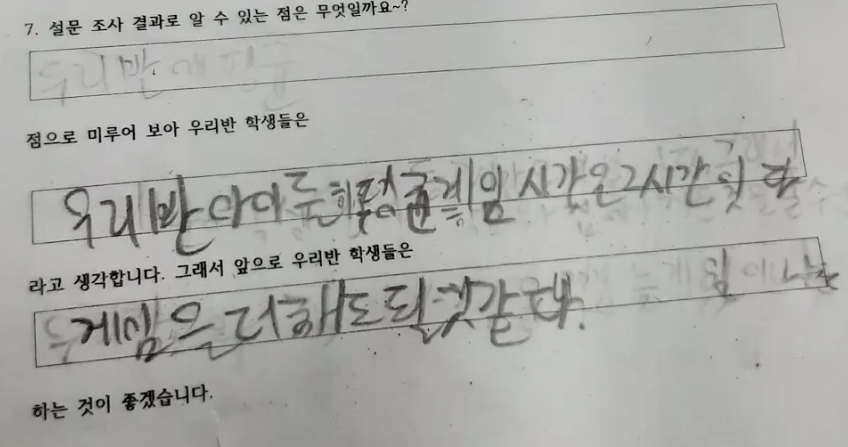 7. 설문 조사 결과로 알 수 있는 점은 무엇일까요~?
우리 반에 평균
점으로 미루어 보아 우리반 학생들은
우리반 아이들의 평균 게임 시간은 2시간
라고 생각합니다. 그래서 앞으로 우리반 학생들은
게임은 더해도 될것같다.
하는 것이 좋겠습니다.